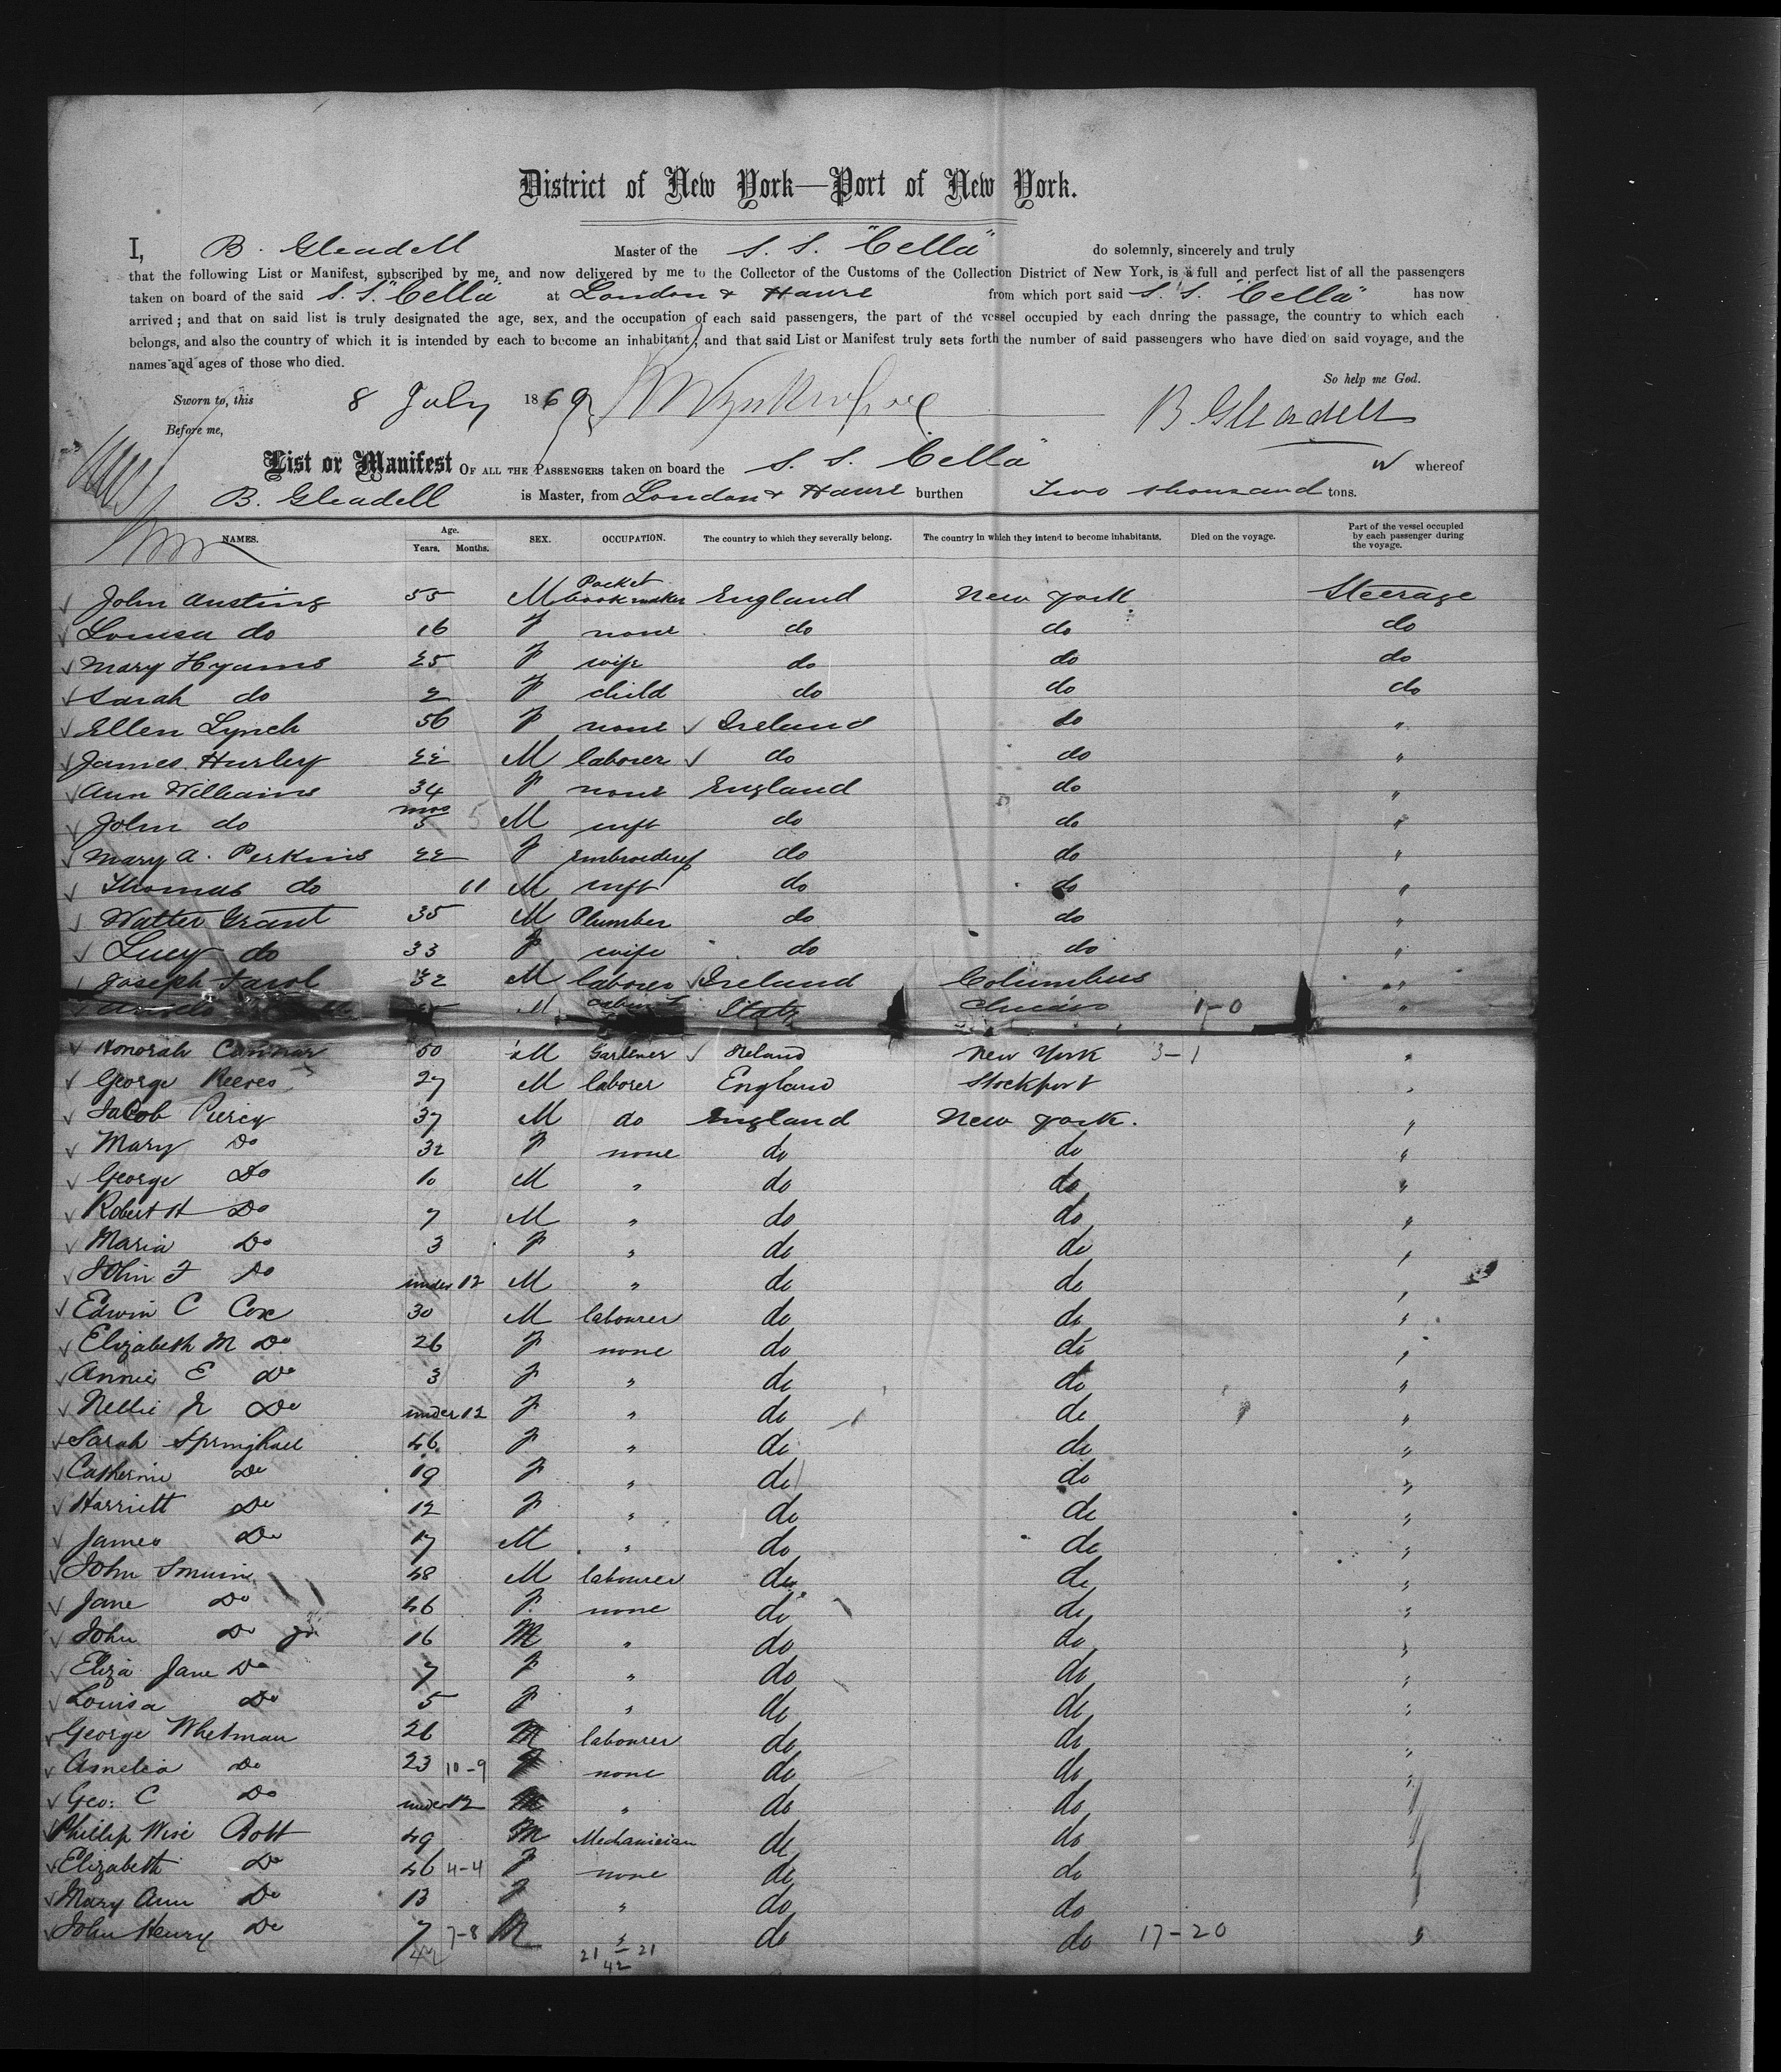 District of New York—Port of New York.
I, B. Gleadell Master of the S. S. "Cella" do solemnly, sincerely and truly
that the following List or Manifest, subscribed by me, and now delivered by me to the Collector of the Customs of the Collection District of New York, is a full and perfect list of all the passengers
taken on board of the said S. S. "Cella" at London & Havre from which port said S. S. "Cella" has now
arrived; and that on said list is truly designated the age, sex, and the occupation of each said passengers, the part of the vessel occupied by each during the passage, the country to which each
belongs, and also the country of which it is intended by each to become an inhabitant; and that said List or Manifest truly sets forth the number of said passengers who have died on said voyage, and the
names and ages of those who died.
So help me God.
Sworn to, this 8 July 1869 B Gleadell
Before me,
List or Manifest OF ALL THE PASSENGERS taken on board the S. S. Cella whereof
B. Gleadell is Master, from London & Havre burthen Two thousand tons.
NAMES. Age. Years. Months. SEX. OCCUPATION. The country to which they severally belong. The country in which they intend to become inhabitants. Died on the voyage. Part of the vessel occupied by each passenger during the voyage.
John Austing 55 M Pocket book maker England New York Steerage
Louisa do 16 F none do do do
Mary Hyams 25 F wife do do do
Sarah do 2 F child do do do
Ellen Lynch 56 F none Ireland do "
James Hurley 22 M laborer do do "
Ann Williams 34 F none England do "
John do mos 5 5 M inft do do "
Mary A. Perkins 22 F Embroiderey do do "
Thomas do 11 M inft do do "
Walter Grant 35 M Plumber do do "
Lucy do 33 F wife do do "
Joseph 32 M laborer Ireland Columbus "
M States 1-0 "
Honorah Connor 50 M Gardener Ireland New York 3-1 "
George Reeves 27 M laborer England Stockport "
Jacob Piercy 37 M do England New York. "
Mary Do 32 F none do do "
George Do 10 M " do do "
Robert H Do 7 M " do do "
Maria Do 3 F " do do "
John F Do under 12 M " do do "
Edwin C Cox 30 M labourer do do "
Elizabeth M Do 26 F none do do "
Annie E Do 3 F " do do "
Nellie Do under 12 F " do do "
Sarah Springhall 46 F " do do "
Catherine Do 19 F " do do "
Harriett Do 12 F " do do "
James Do 17 M " do do "
John 48 M labourer do do "
Jane Do 46 F none do do "
John Do Jr 16 M " do do "
Eliza Jane Do 7 F " do do "
Louisa Do 5 F " do do "
George Whetman 26 M labourer do do "
Amelia Do 23 10-9 F none do do "
Geo: C Do under 12 M " do do "
Phillip Wise Bott 49 M Mechanician do do "
Elizabeth Do 46 4-4 F none do do "
Mary Ann Do 13 F " do do "
John Henry Do 7 7-8 M " do do 17-20 "
42 21 - 21
42